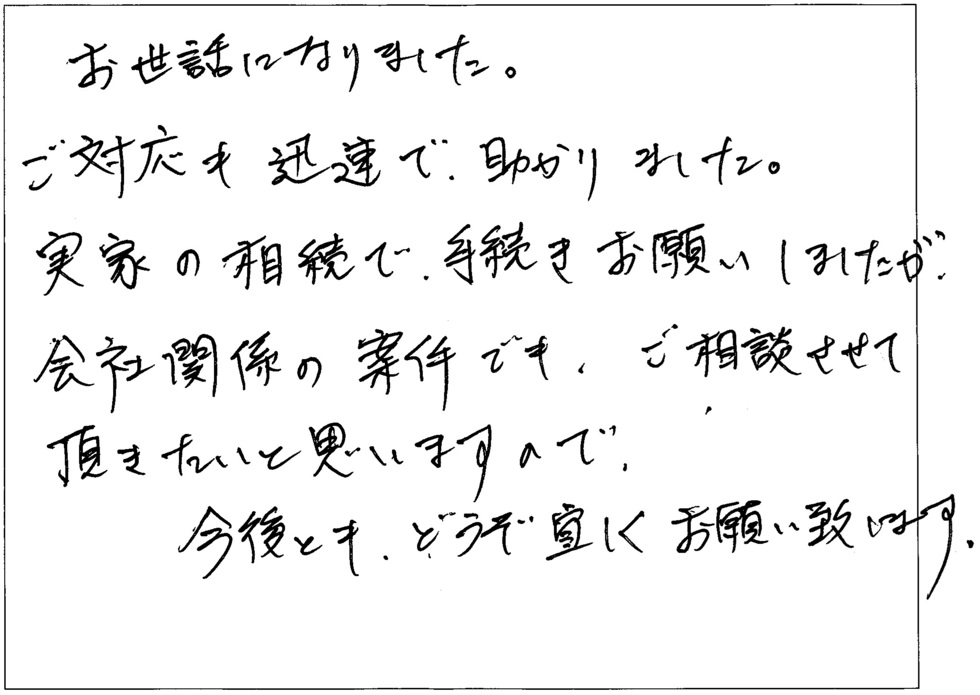 お世話になりました。
ご対応も迅速で、助かりました。
実家の相続で、手続きお願いしましたが、
会社関係の案件でも、ご相談させて
頂きたいと思いますので、
今後とも、どうぞ宜しくお願い致します。